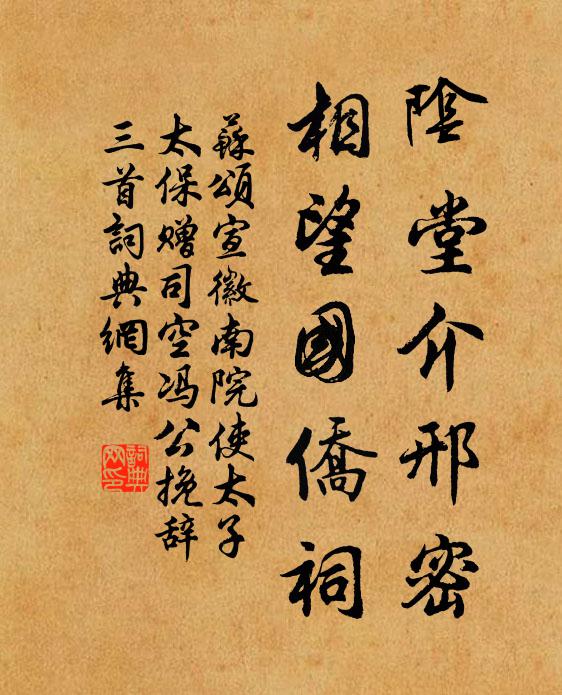 陰堂介邢密
相望國僑祠
蘇頌宣徽南院使太子
太保贈司空冯公挽辞
三首詞典網集
詞典
网印